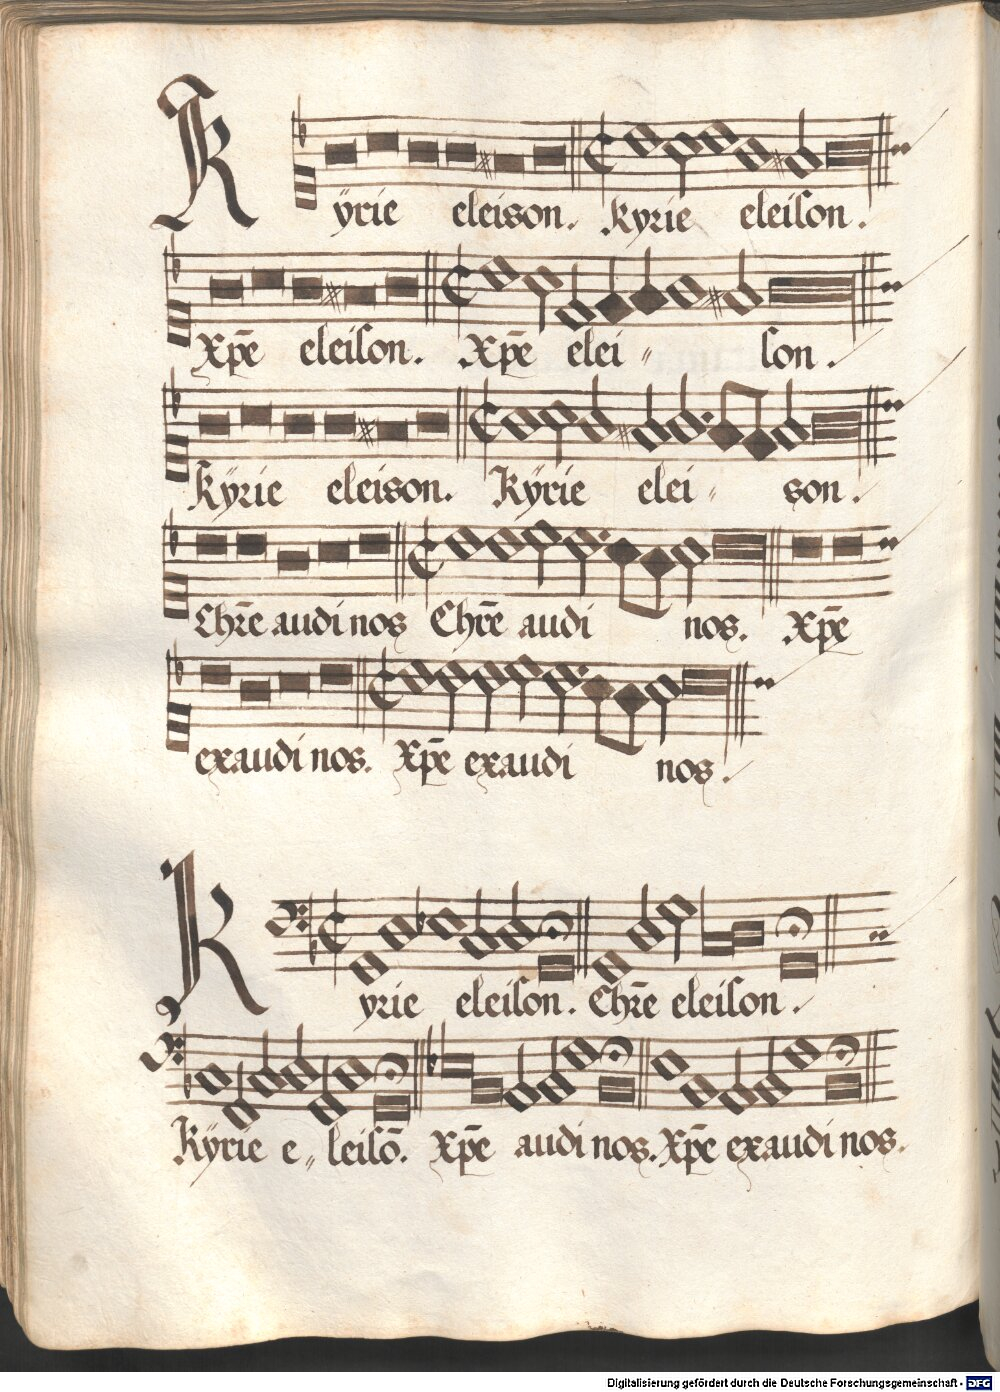 Kÿrie eleison. Kyrie eleiſon.
Xp̄e eleiſon. Xp̄e elei〃 ſon.
Kÿrie eleison. Kÿrie elei〃 son.
Chr̄e audi nos Chr̄e audi nos. Xp̄e
exaudi nos. Xp̄e exaudi nos.
Kyrie eleiſon. Chr̄e eleiſon.
Kÿrie e〃leiſō. Xp̄e audi nos. Xp̄e exaudi nos.
Digitalisierung gefördert durch die Deutsche Forschungsgemeinschaft - DFG